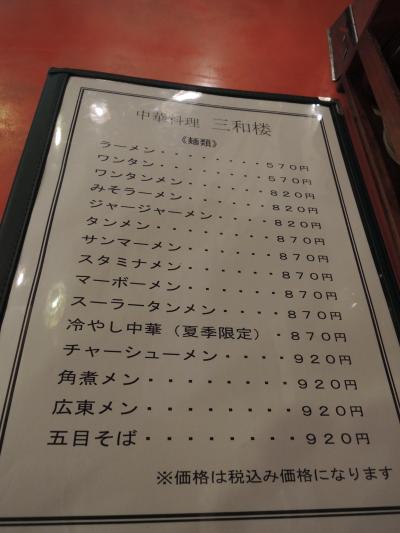 中華料理 三和楼
《麺類》
ラーメン・・・・・・・・・570円
ワンタン・・・・・・・・・570円
ワンタンメン・・・・・・・820円
みそラーメン・・・・・・・820円
ジャージャーメン・・・・・820円
タンメン・・・・・・・・・870円
サンマーメン・・・・・・・870円
スタミナメン・・・・・・・870円
マーボーメン・・・・・・・870円
スーラータンメン・・・・・870円
冷やし中華(夏季限定)・870円
チャーシューメン・・・・920円
角煮メン・・・・・・・・920円
広東メン・・・・・・・・920円
五目そば・・・・・・・・920円
※価格は税込み価格になります